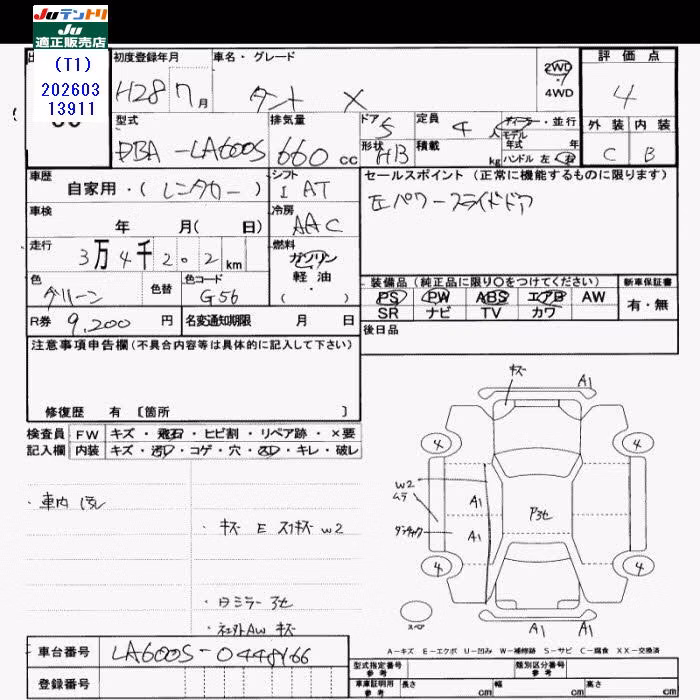 JUテントリ
JU
適正販売店
(T1)
202603
13911
初度登録年月
H28 7月
車名・グレード
タント X
2WD
4WD
評価点
4
外装 内装
C B
型式
DBA-LA600S
排気量
660 cc
ドア
5
形状
HB
定員
4人
積載
kg
ディーラー・並行
モデル
年式 年
ハンドル 左 右
車歴
自家用・(レンタカー)
シフト
I AT
車検
年 月( 日)
冷房
AAC
走行
3万4千202km
燃料
ガソリン
軽・油
( ・ )
色
グリーン
色替
色コード
G56
R券 9,200 円
名変通知期限 月 日
セールスポイント(正常に機能するものに限ります)
左パワースライドドア
装備品(純正品に限り○をつけてください)
PS PW ABS エアB AW
SR ナビ TV カワ
新車保証書
有・無
後日品
注意事項申告欄(不具合内容等は具体的に記入して下さい)
修復歴 有 〔箇所 〕
検査員
記入欄
FW キズ・飛石・ヒビ割・リペア跡・×要
内装 キズ・汚れ・コゲ・穴・スレ・キレ・破レ
・車内 汚れ
・キズ E スリキズ W2
・社外AW キズ
キズ
A1
4
4
W2
ムラ
A1
A1
4
4
スペア
A1
A1
A-キズ E-エクボ U-凹み W-補修跡 S-サビ C-腐食 XX-交換済
車台番号
LA600S-0448166
登録番号
型式指定番号
参考
類別区分番号
参考
車庫証明用
参考
長さ cm
幅 cm
高さ cm